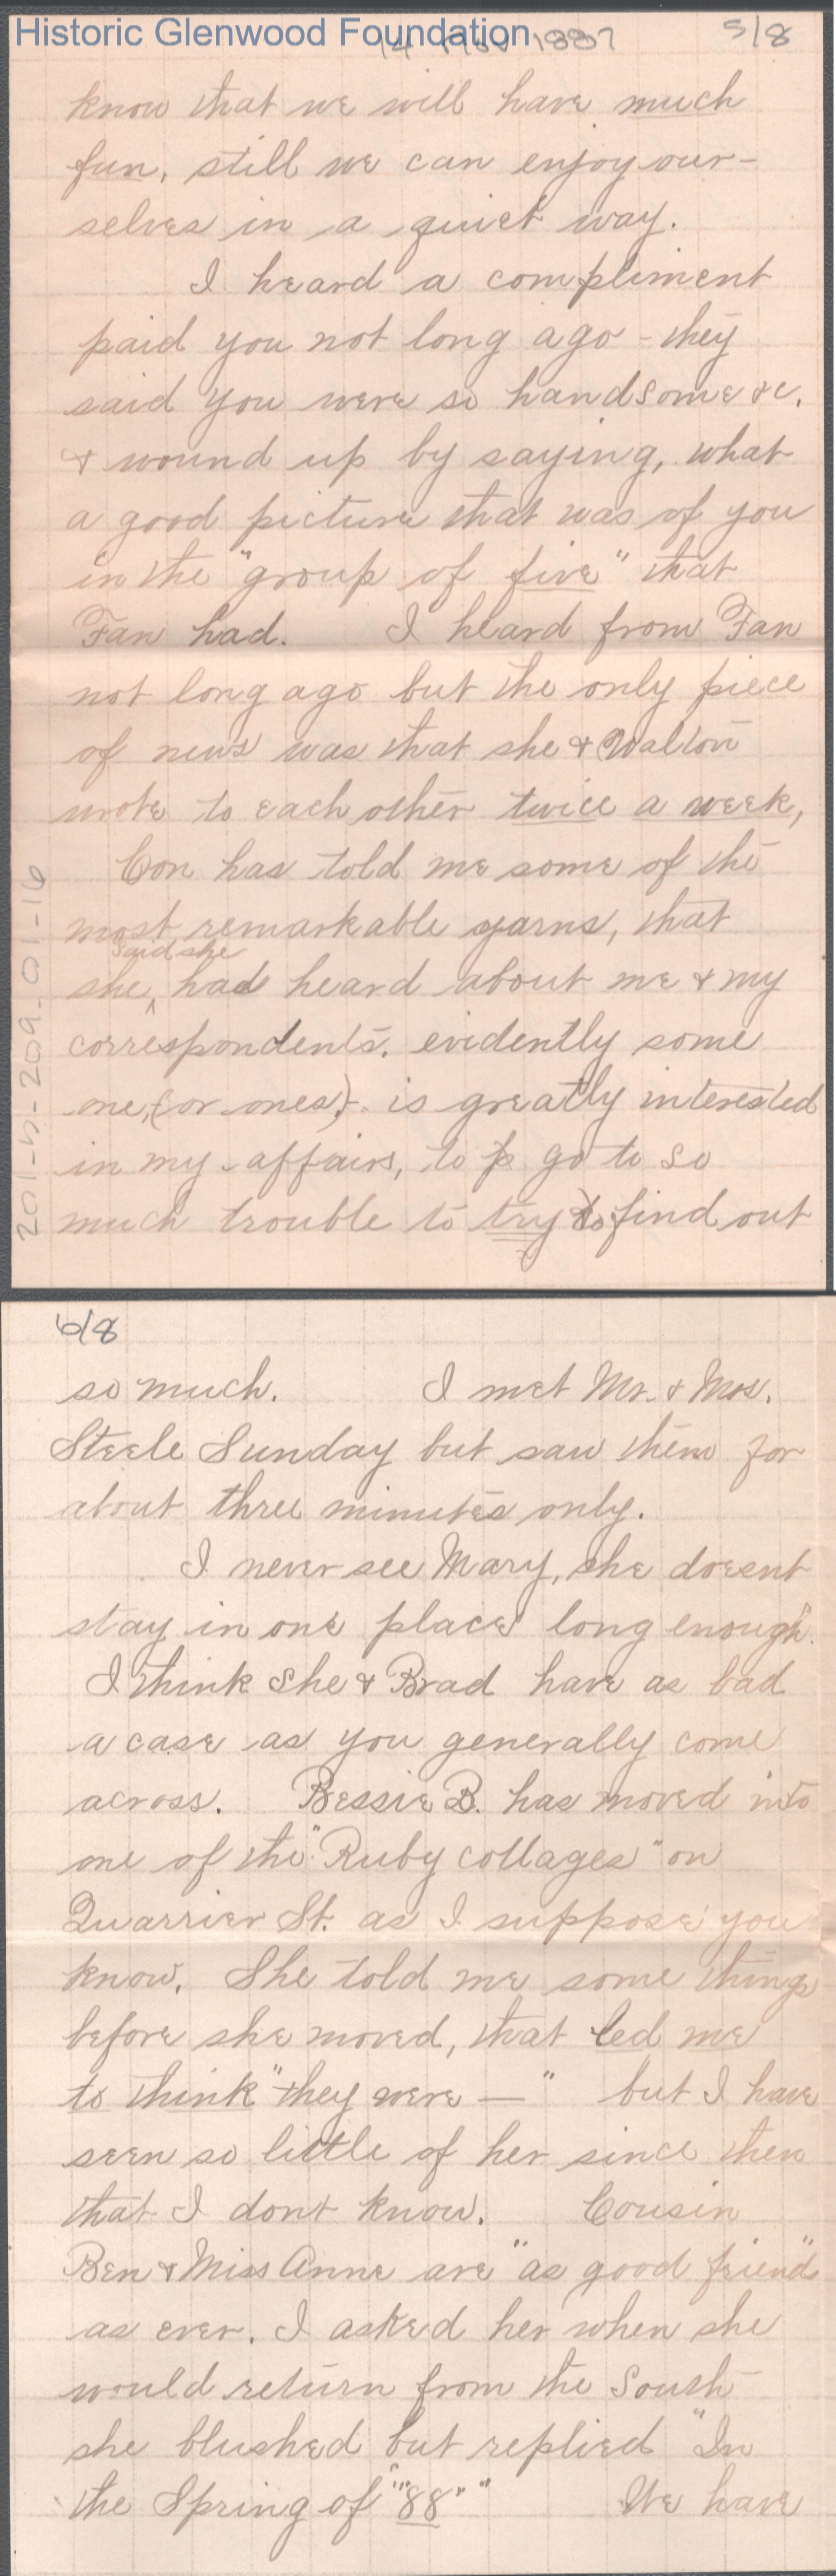 Historic Glenwood Foundation
14 Nov 1887 5/8
know that we will have much
fun, still we can enjoy our-
selves in a quiet way.
I heard a compliment
paid you not long ago - they
said you were so handsome &c.
& wound up by saying, what
a good picture that was of you
in the "group of five" that
Fan had. I heard from Fan
not long ago but the only piece
of news was that she & Walton
wrote to each other twice a week,
Con has told me some of the
most remarkable yarns, that
said she
she ^ had heard about me & my
correspondents. evidently some
one, (or ones), is greatly interested
in my affairs, to go to so
much trouble to try to find out
201-5-209-01-16
6/8
so much. I met Mr. & Mrs.
Steele Sunday but saw them for
about three minutes only.
I never see Mary, she doesnt
stay in one place long enough.
I think she & Brad have as bad
a case as you generally come
across. Bessie B. has moved into
one of the "Ruby cottages" on
Quarrier St. as I suppose you
know. She told me some things
before she moved, that led me
to think "they were — " but I have
seen so little of her since then
that I dont know. Cousin
Ben & Miss Anne are "as good friends"
as ever. I asked her when she
would return from the South
she blushed but replied "In
the Spring of "'88"" We have